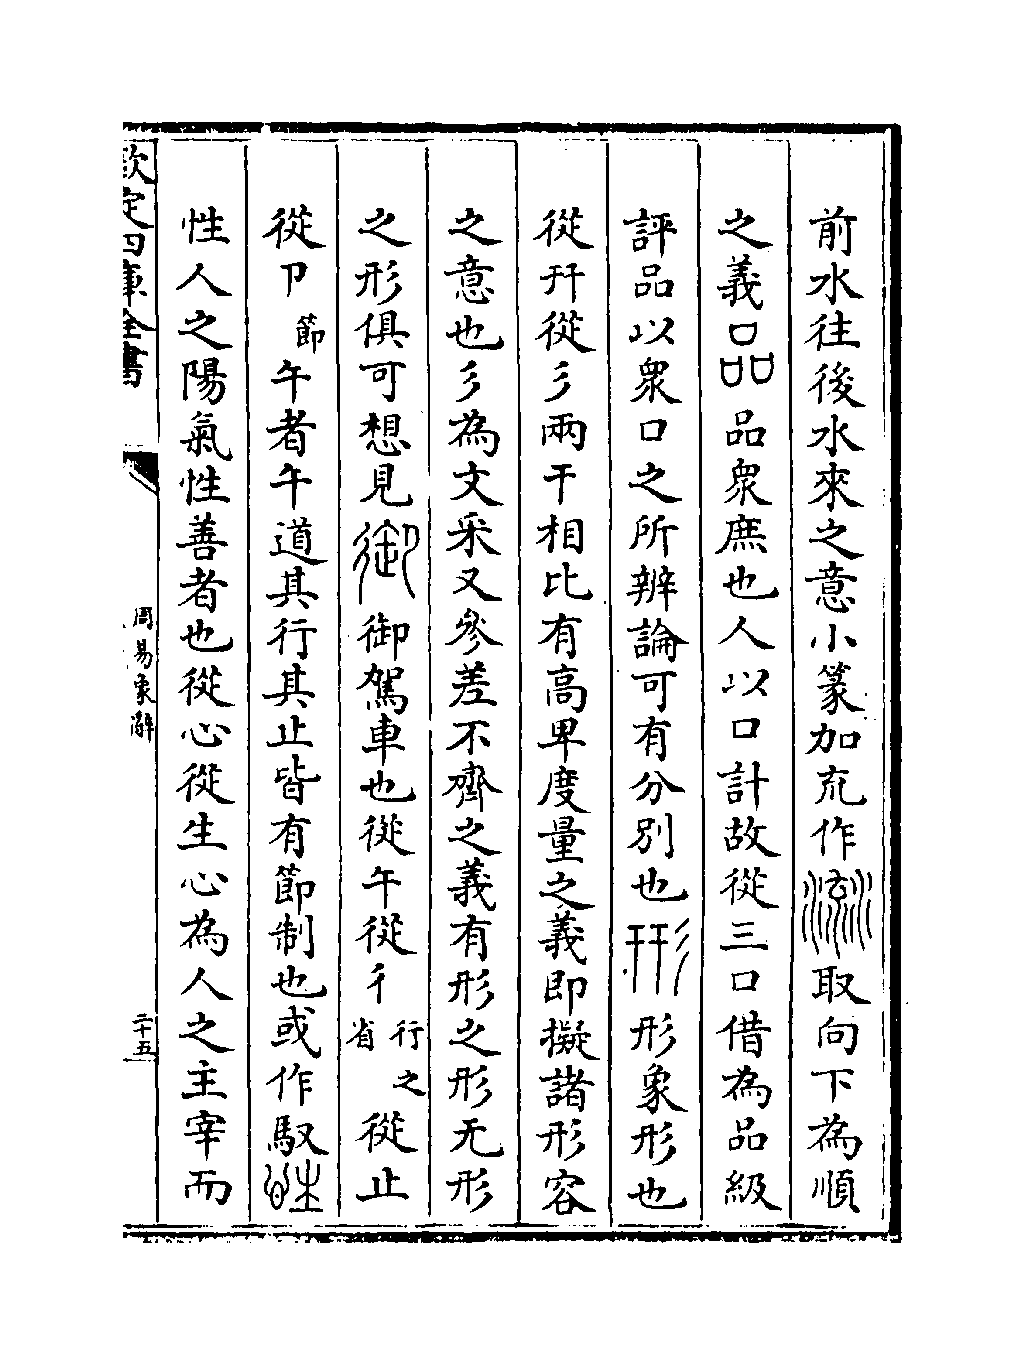 前水往後水來之意小篆加㐬作𣻏取向下為順
之義品品衆庶也人以口計故從三口借為品級
評品以衆口之所辨論可有分别也形形象形也
從幵從彡兩干相比有高卑度量之義即擬諸形容
之意也彡為文采又參差不齊之義有形之形无形
之形俱可想見御御駕車也從午從彳行之省從止
從卩節午者午道其行其止皆有節制也或作馭性
性人之陽氣性善者也從心從生心為人之主宰而
欽定四庫全書
周易象辭
二十五